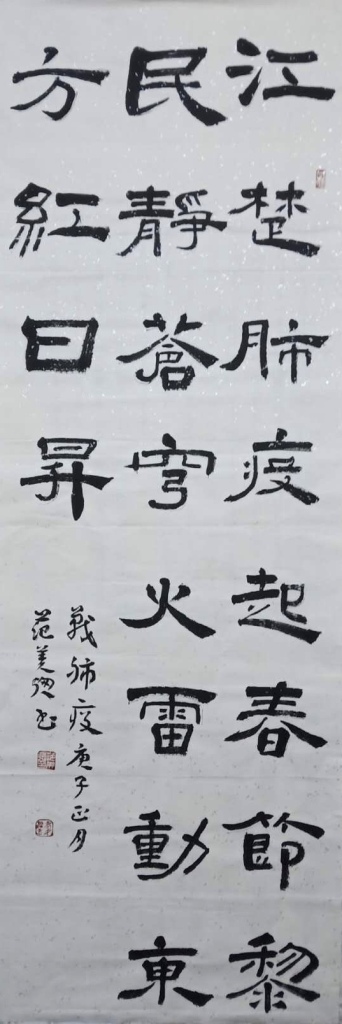 江楚肺疫起春節黎
民靜蒼穹火雷動東
方紅日昇
戰肺疫庚子正月
范美
書